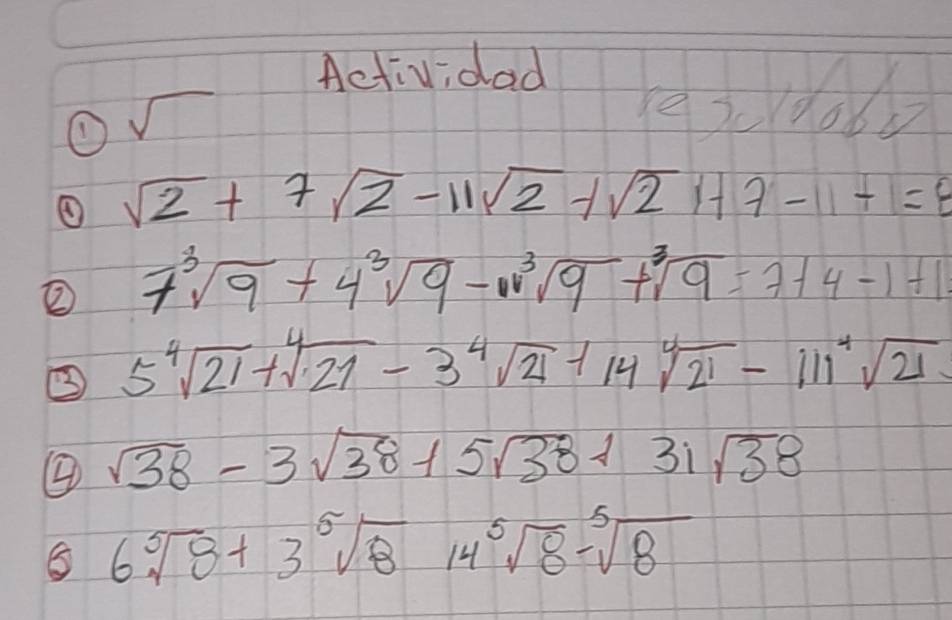 Actividad
① √
① √2 + 7√2 - 11√2 + √2 1+7-11+1=
② 7³√9 + 4³√9 - ³√9 + ³√9 = 7+4-1+1
③ 5⁴√21 + ⁴√21 - 3⁴√21 + 14⁴√21 - 111⁴√21
④ √38 - 3√38 + 5√38 + 31√38
⑤ 6⁵√8 + 3⁵√8 14⁵√8 - ⁵√8